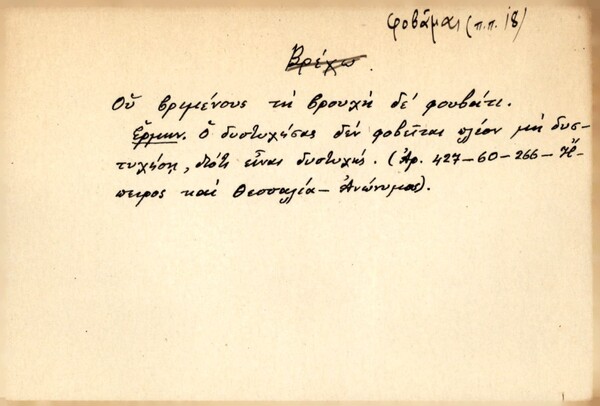 φοβᾶμαι (π.π. 18)
Βρέχω.
Οὗ βριμένους τη βρουχή δέ φουβάτι.
Ἑρμην. Ὁ δυστυχήσας δέν φοβεῖται πλέον μή δυσ-
τυχήσῃ, διότι εἶναι δυστυχής. (Ἀρ. 427-60-266- Ἤ-
πειρος καί Θεσσαλία - Ἀνώνυμος).